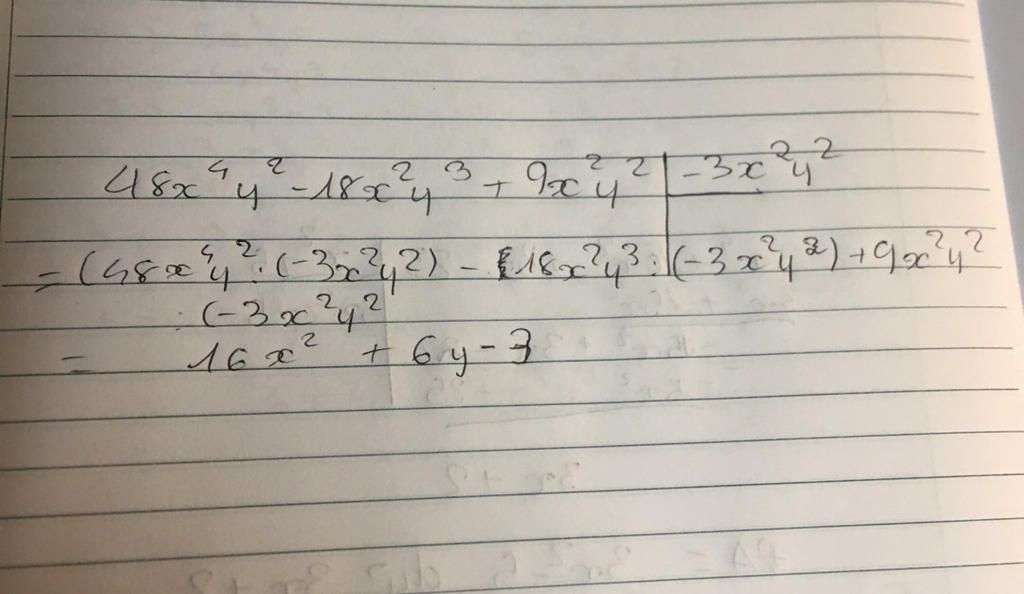 48x⁴y² - 18x²y³ + 9x²y² | -3x²y²
= (48x⁴y² : (-3x²y²) - 18x²y³ : (-3x²y²) + 9x²y²
: (-3x²y²
= 16x² + 6y - 3